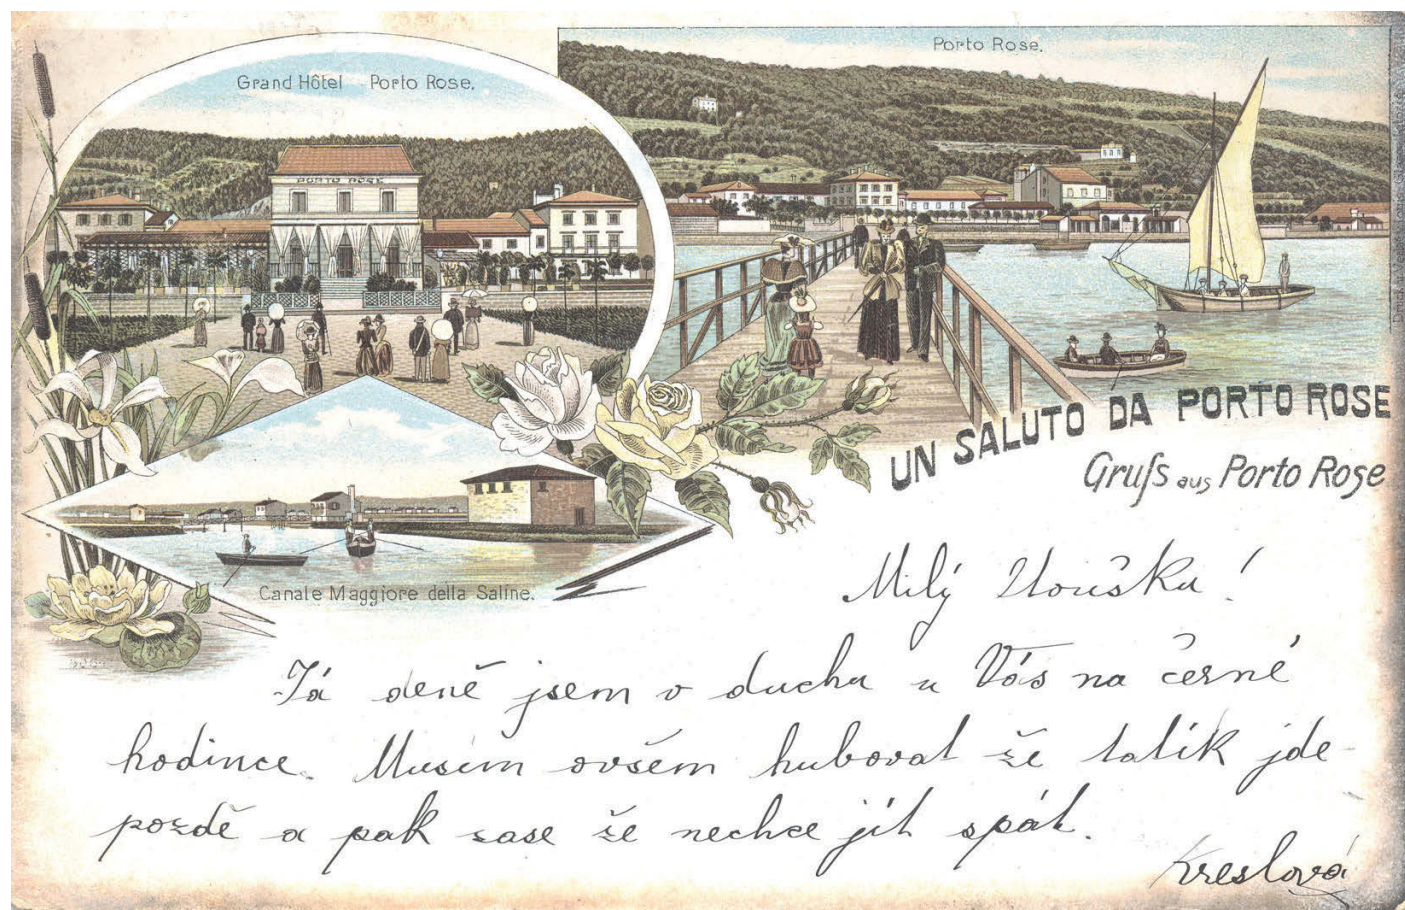 Grand Hôtel Porto Rose.
PORTO ROSE
Porto Rose.
Canale Maggiore della Saline.
UN SALUTO DA PORTO ROSE
Gruſs aus Porto Rose
Milý !
Já deně jsem v duchu u Vás na černé
hodince. Musím ovšem hubovat že tatík jde
pozdě a pak zase že nechce jít spát.
Kreslová